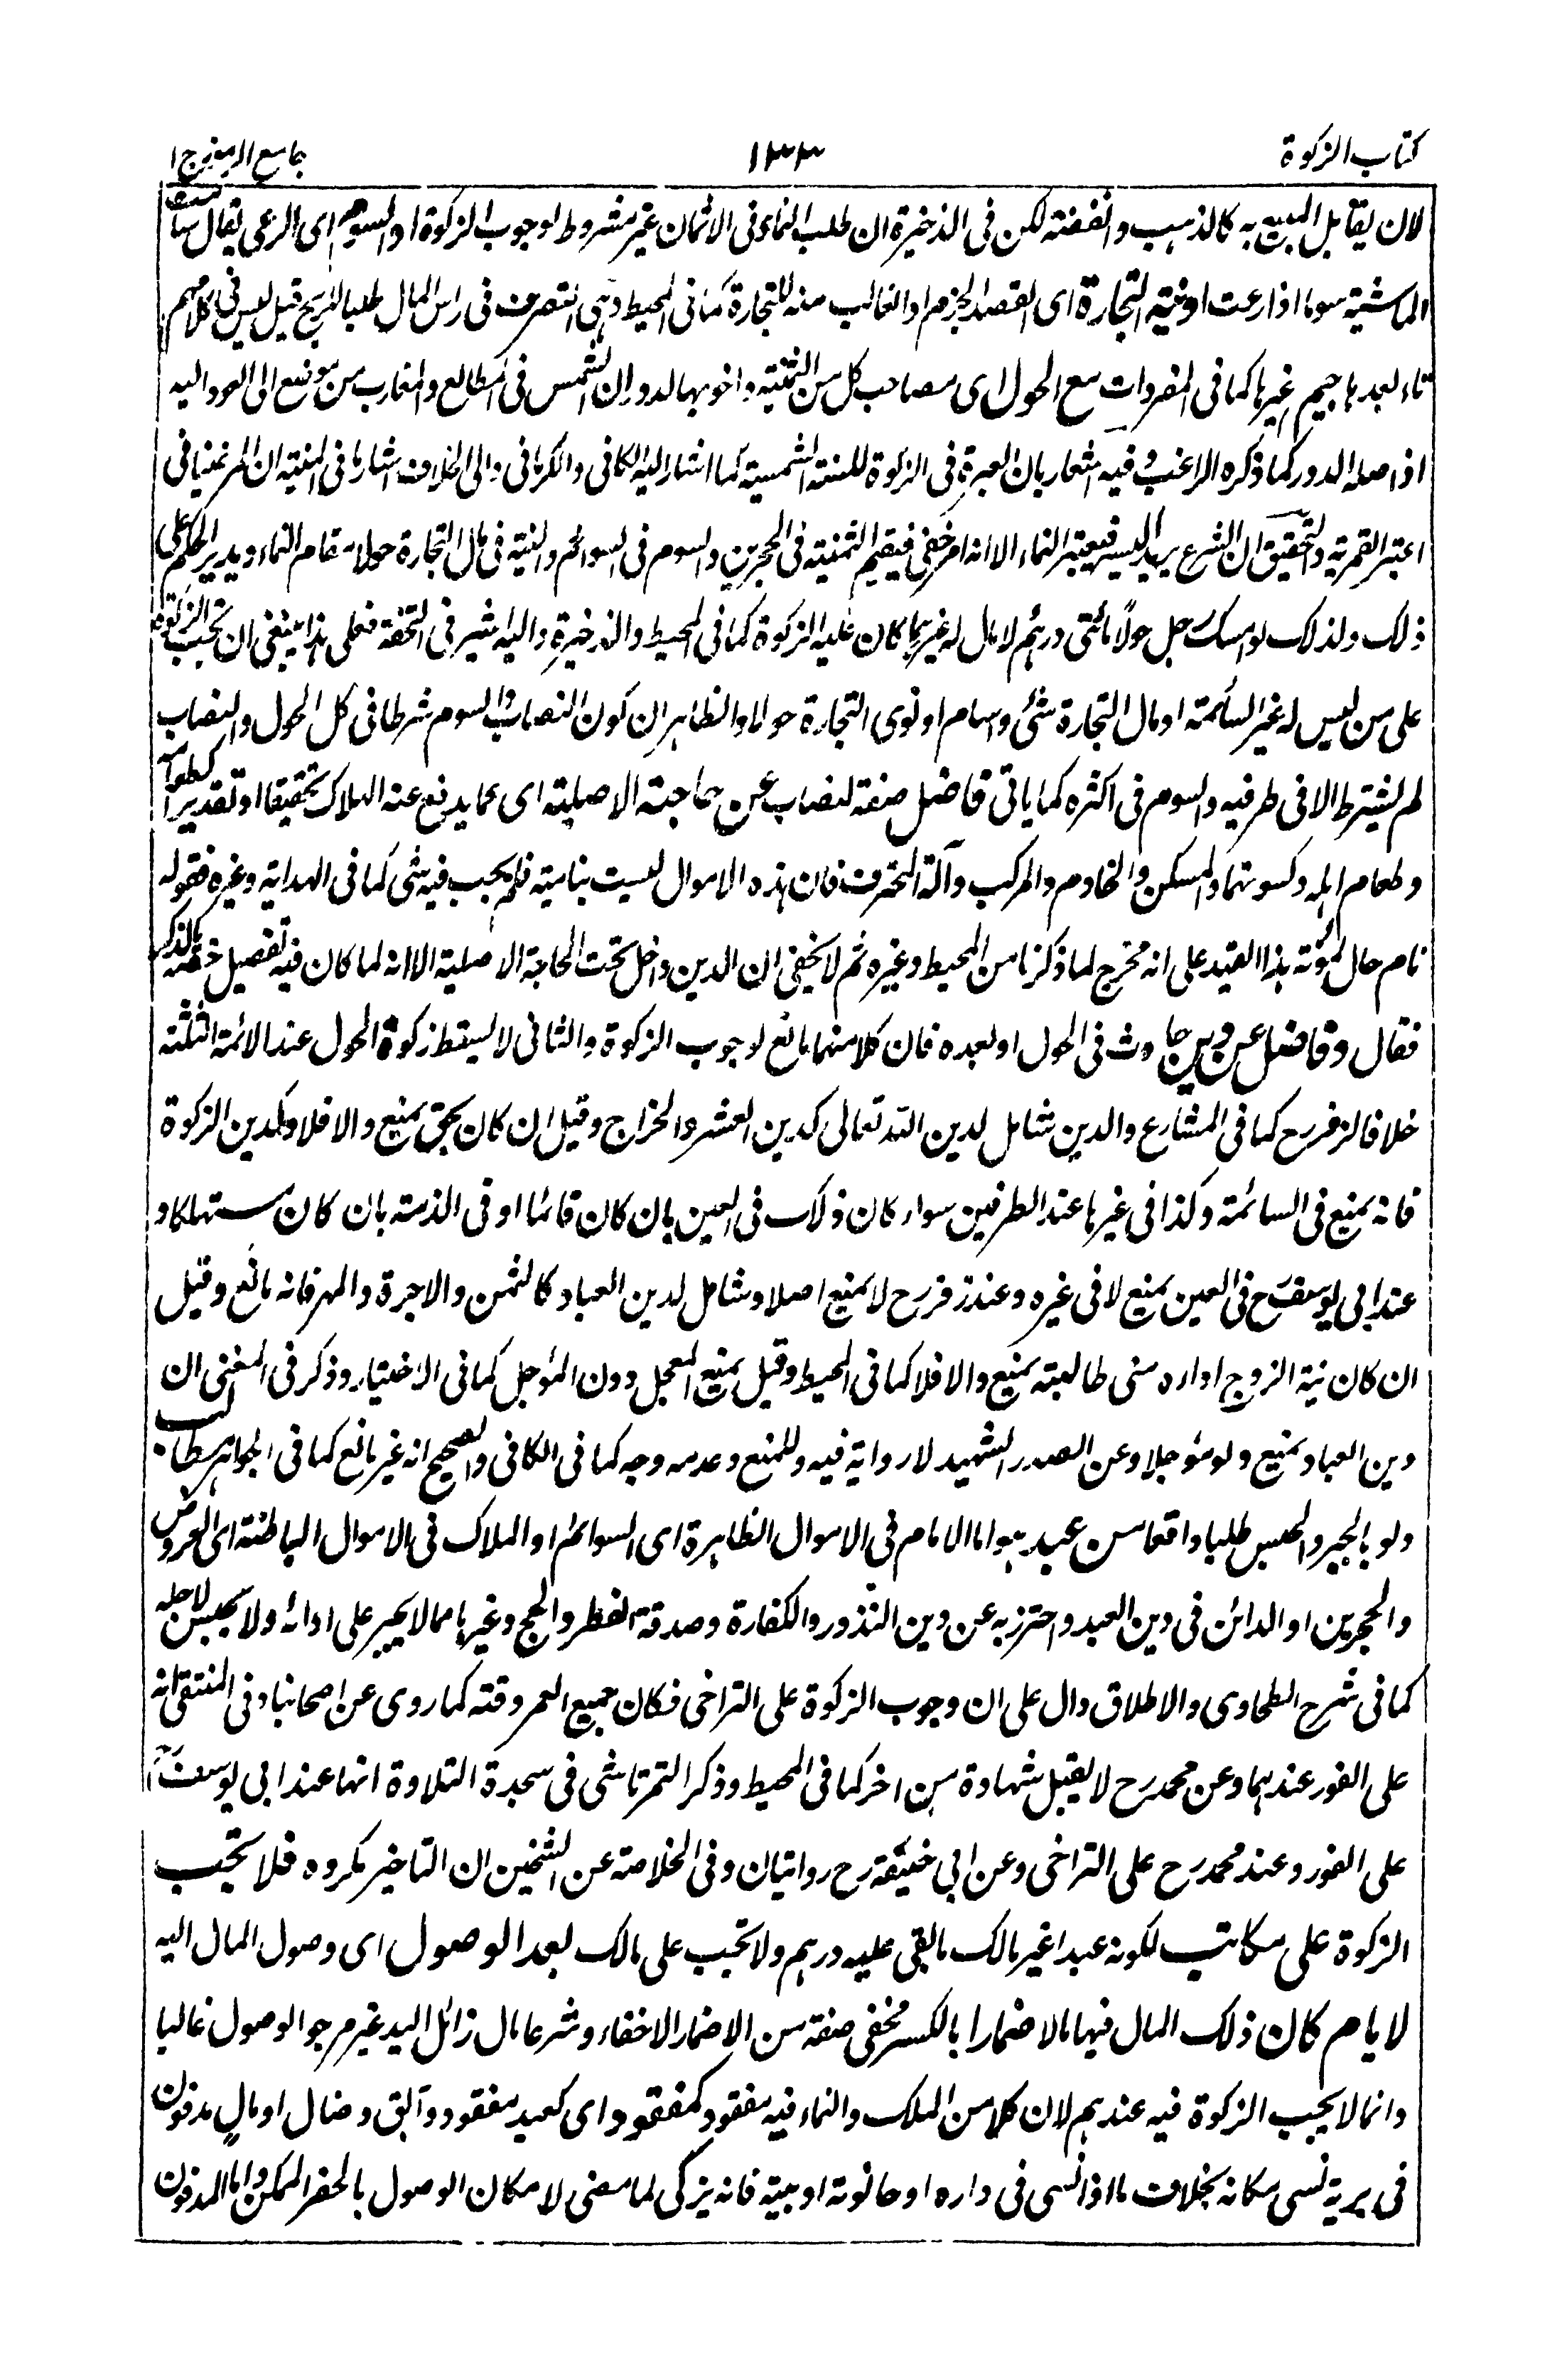 كتاب الزكوة
١٣٣
جامع الرموز ج ١
لان يقابل المبيع به كالذهب والفضة لكن فى الذخيرة ان طلب النماء فى الاثمان غير مشروط لوجوب الزكوة او السوم اى الرعى يقال سامت
الماشية سوما اذا رعت او نية التجارة اى القصد الجزم او الغالب منه للتجارة كما فى المحيط وهى التصرف فى راس المال طلبا للربح قيل ليس فى كلامهم
تاء بعدها جيم غيرها كما فى المفردات مع الحول اى مصاحب كل من الثمنية واخويها لدوران الشمس فى المطالع والمغارب من موضع الى العود اليه
اذ اصله الدور كما ذكره الراغب وفيه اشعار بان العبرة فى الزكوة للسنة الشمسية كما اشار اليه الكافى والكرمانى والى الخلاف اشار ما فى المنية ان المرغينانى
اعتبر القمرية والتحقيق ان الشرع يريد اليسير فيعتبر النماء الا انه امر خفى فيقيم الثمنية فى الحجرين والسوم فى السوائم والنية فى مال التجارة حولا مقام النماء ويدير الحكم على
ذلك ولذلك لو امسك رجل حولاً مائتى درهم لا مال له غيرها كان عليه الزكوة كما فى المحيط والذخيرة واليه اشير فى التحفة فعلى هذا ينبغى ان تجب الزكوة
على من ليس له غير السائمة او مال التجارة شئ واسام او نوى التجارة حولا والظاهر ان كون النصاب والسوم شرطا فى كل الحول والنصاب
لم يشترط الا فى طرفيه والسوم فى اكثره كما ياتى فاضل صفة لنصاب عن حاجته الاصلية اى عما يدفع عنه الهلاك تحقيقا او تقديرا كطعامه
وطعام اهله وكسوتهما والمسكن والخادم والمركب وآلة المحترف فان هذه الاموال ليست بنامية فلم يجب فيه شئ كما فى الهداية وغيره فقوله
نام حال مؤنة هذا القيد على انه مخرج لما ذكرنا من المحيط وغيره ثم لا يخفى ان الدين داخل تحت الحاجة الاصلية الا انه لما كان فيه تفصيل خصه بالذكر
فقال وفاضل عن دين حادث فى الحول او بعده فان كلا منهما مانع لوجوب الزكوة والثانى لا يسقط زكوة الحول عند الائمة الثلثة
خلافا لزفر رح كما فى المشارع والدين شامل لدين الله تعالى كدين العشر والخراج وقيل ان كان بحق يمنع والا فلا وكدين الزكوة
فانه يمنع فى السائمة وكذا فى غيرها عند الطرفين سواء كان ذلك فى العين بان كان قائما او فى الذمة بان كان مستهلكا و
عند ابى يوسف رح فى العين يمنع لا فى غيره وعند زفر رح لا يمنع اصلا وشامل لدين العباد كالثمن والاجرة والمهر فانه مانع وقيل
ان كان نية الزوج اداءه متى طالبته يمنع والا فلا كما فى المحيط وقيل يمنع المعجل دون المؤجل كما فى الاختيار وذكر فى المغنى ان
دين العباد يمنع ولو مؤجلا وعن الصدر الشهيد لا رواية فيه وللمنع وعدمه وجه كما فى الكافى والصحيح انه غير مانع كما فى الجواهر مطالب
ولو بالجبر والحبس طلبا واقعا من عبد هو اما الامام فى الاموال الظاهرة اى السوائم او الملاك فى الاموال الباطنة اى العروض
والحجرين او الدائن فى دين العبد واحترز به عن دين النذور والكفارة وصدقة الفطر والحج وغيرها مما لا يجبر على ادائه ولا يحبس لاجله
كما فى شرح الطحاوى والاطلاق دال على ان وجوب الزكوة على التراخى فكان جميع العمر وقته كما روى عن اصحابنا وفى المنتقى انه
على الفور عندهما وعن محمد رح لا يقبل شهادة من اخر كما فى المحيط وذكر التمرتاشى فى سجدة التلاوة انها عند ابى يوسف رح
على الفور وعند محمد رح على التراخى وعن ابى حنيفة رح روايتان وفى الخلاصة عن الشيخين ان التاخير مكروه فلا تجب
الزكوة على مكاتب لكونه عبدا غير مالك ما بقى عليه درهم ولا تجب على مالك بعد الوصول اى وصول المال اليه
لايام كان ذلك المال فيها مالا ضمارا بالكسر مخفى صفة من الاضمار الاخفاء وشرعا مال زائل اليد غير مرجو الوصول غالبا
وانما لا يجب الزكوة فيه عندهم لان كلا من الملك والنماء فيه مفقود كمفقود اى كعبد مفقود وآبق وضال او مال مدفون
فى برية نسى مكانه بخلاف ما اذا نسى فى داره او حانوته او بيته فانه يزكى لما مضى لامكان الوصول بالحفر الممكن واما المدفون